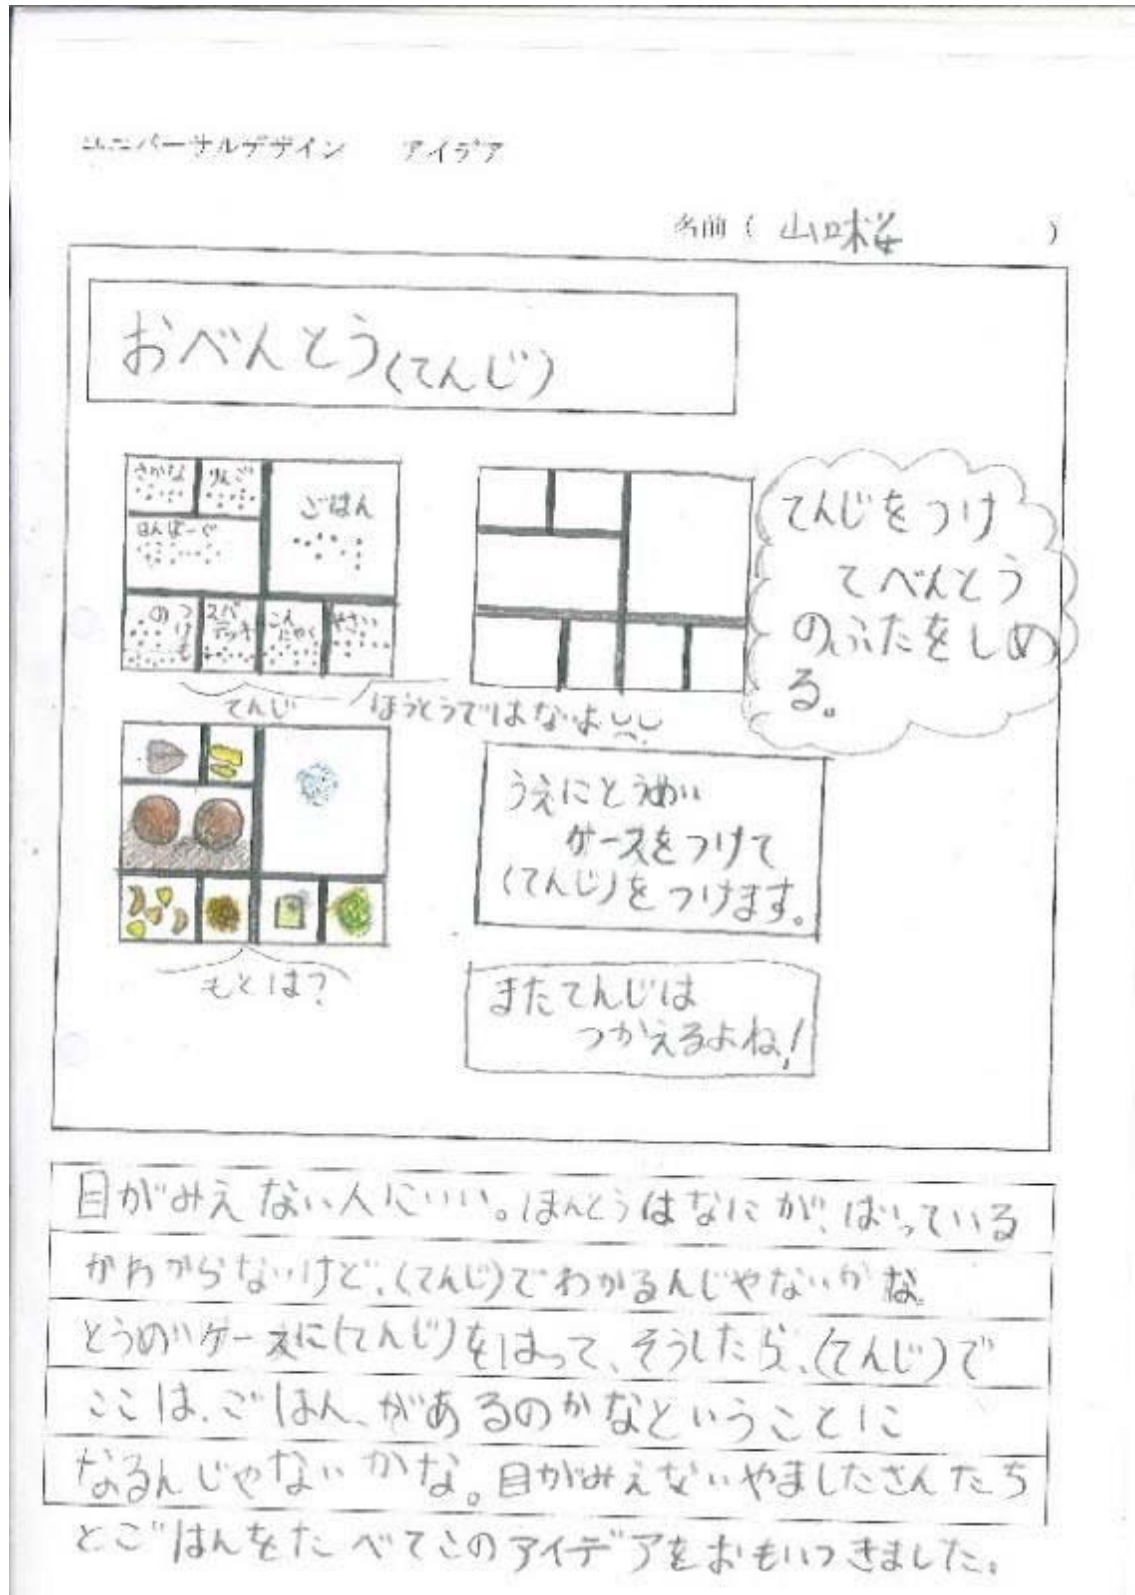 ユニバーサルデザイン アイデア
名前( 山口桜 )
おべんとう(てんじ)
さかな りんご
ごはん
はんばーぐ
つけもの スパゲッティ こんにゃく やさい
てんじ
ほうとうではないよ
てんじをつけ
てべんとう
のふたをしめ
る。
うえにとうめい
ケースをつけて
(てんじ)をつけます。
もとは?
またてんじは
つかえるよね!
目がみえない人にいい。ほんとうはなにが、はいっている
かわからないけど、(てんじ)でわかるんじゃないかな
とうめいケースに(てんじ)をはって、そうしたら、(てんじ)で
ここは、ごはん、があるのかなということに
なるんじゃないかな。目がみえないやましたさんたち
とごはんをたべてこのアイデアをおもいつきました。